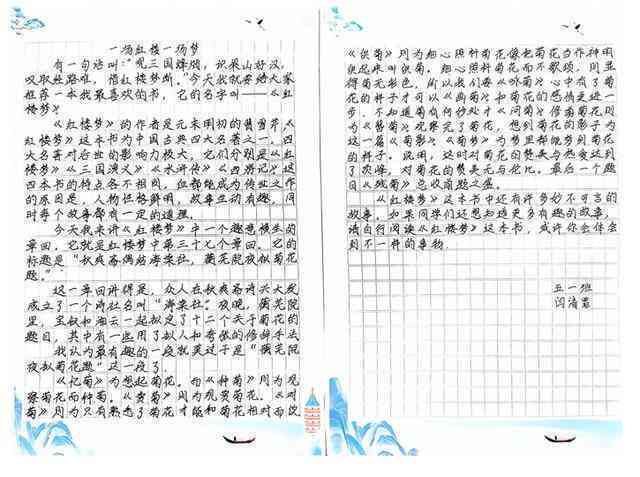 一场红楼一场梦
有一句话叫："观三国烽烟，识梁山好汉，
叹取经路难，惜红楼梦断。"今天我就要给大家
推荐一本我最喜欢的书，它的名字叫——《红
楼梦》。
《红楼梦》的作者是元末明初的曹雪芹，《
红楼梦》这本书为中国古典四大名著之一。四
大名著对后世的影响力极大，它们分别是《红
楼梦》《三国演义》《水浒传》《西游记》这
四本书的特点各不相同，但都能成为传世之作
的原因是，人物性格鲜明，故事生动有趣，同
时每个故事都有一定的道理。
今天我来讲《红楼梦》中一个趣意横生的
章回。它就是红楼梦中第三十七个章回。它的
标题是"秋爽斋偶结海棠社，蘅芜院夜拟菊花
题。"
这一章回讲得是，众人在秋爽斋诗兴大发
成立了一个诗社名叫"海棠社"。夜晚，蘅芜院
里，宝钗和湘云一起拟定了十二个关于菊花的
题目，其中有一些用了拟人和夸张的修辞手法
我认为最有趣的一段就莫过于是"蘅芜院
夜拟菊花题"这一段了。
《忆菊》为想起菊花。而《种菊》则为观
察菊花而种菊。《访菊》则为观赏菊花。《对
菊》则为只有熟悉了菊花才能和菊花相对而设
《供菊》则为细心照料菊花像把菊花当作神明
供起来叫供菊。细心照料菊花而不歌颂，则显
得菊无彩色，所以我们要《咏菊》心中有了菊
花的样子才可以《画菊》和菊花的感情更进一
步，不知道菊向何处叶《问菊》修菊花则
为《簪菊》观察完了菊花，想到菊花的影子为
这一篇《菊影》《菊梦》为梦里都能梦到菊花
的样子。说明，这时对菊花的赞美与热爱达到
了次峰，对菊花的赞美无与伦比。最后一个题
目《残菊》总收前题之盛。
《红楼梦》这本书中还有许多妙不可言的
故事，如果同学们还想知道更多有趣的故事，
请自行阅读《红楼梦》这本书，或许你会体会
到不一样的事物。
五一班